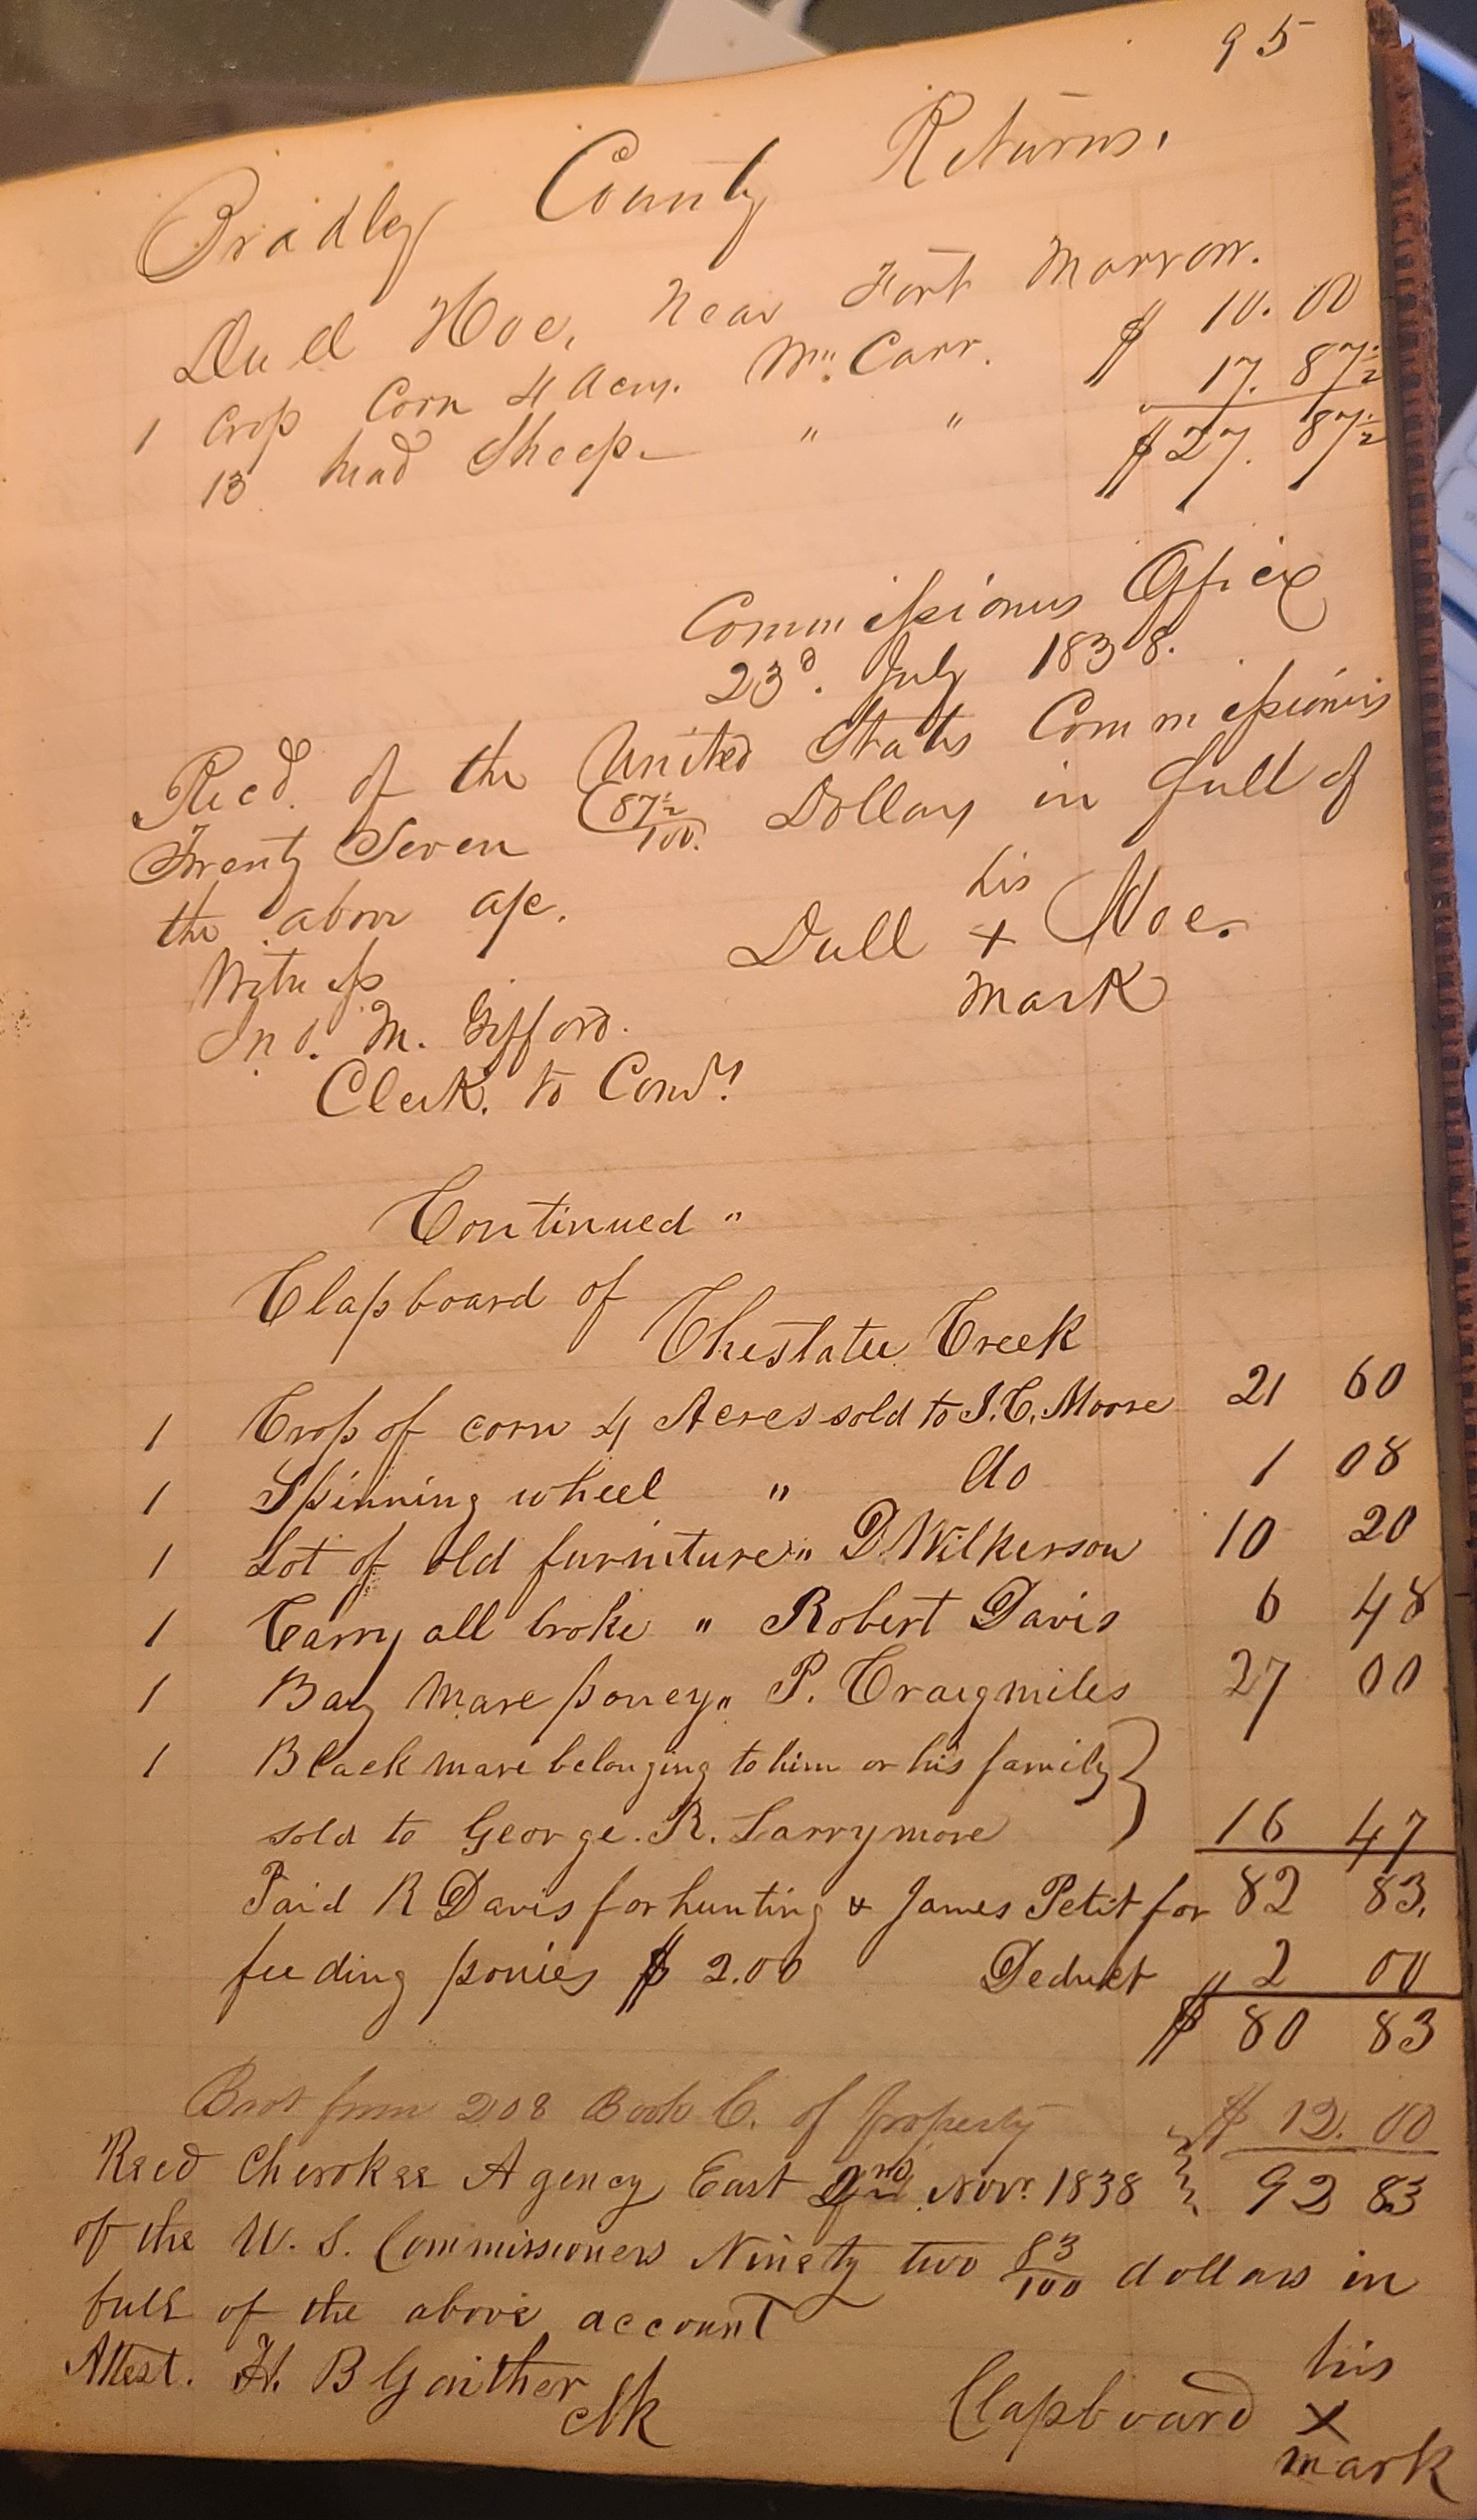 95
Bradley County Returns.
Dull Hoe, Near Fort Marrow.
1 Crop Corn 4 Acres. Mr. Carr. $ 10. 00
13 head Sheep — " " 17. 87½
$ 27. 87½
Commissioners Office
23d. July 1838.
Recd. of the United States Commissioners
Twenty Seven 87½/100 Dollars in full of
the above a/c.
his
Dull + Hoe.
mark
Witness
Jno. M. Gifford.
Clerk. to Coms.
Continued "
Clapboard of
Chestatee Creek
1 Crop of corn 4 Acres sold to J. C. Moore 21 60
1 Spinning wheel " do 1 08
1 Lot of old furniture " D. Wilkerson 10 20
1 Carry all broke " Robert Davis 6 48
1 Bay mare poney " P. Craigmiles 27 00
1 Black mare belonging to him or his family }
sold to George. R. Larrymore 16 47
Paid R Davis for hunting & James Petit for 82 83.
feeding ponies $ 2.00 Deduct 2 00
$ 80 83
Brot from 208 Book C. of property $ 12. 00
Recd Cherokee Agency East 2nd Novr. 1838 92 83
of the U. S. Commissioners Ninety two 83/100 dollars in
full of the above account
Attest. H. B Gaither
clk
his
Clapboard x
mark